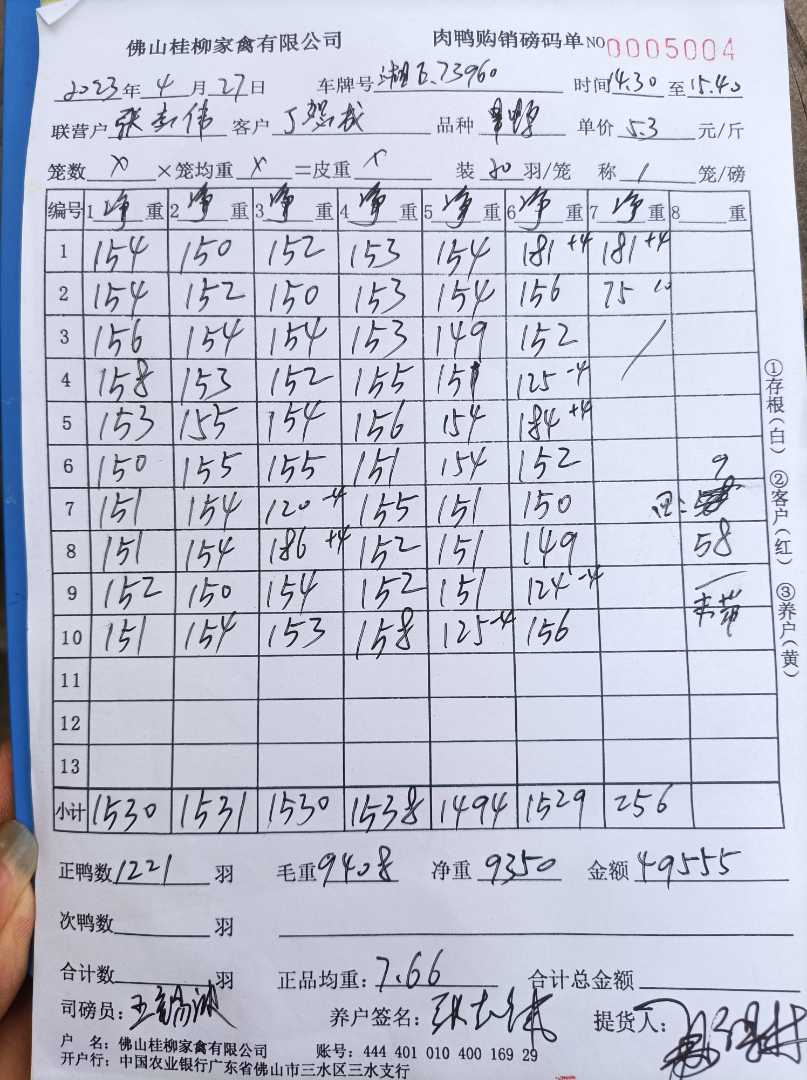 佛山桂柳家禽有限公司 肉鸭购销磅码单 NO 0005004
2023年 4 月 27日 车牌号 湘E.73960 时间 14.30 至 15.40
联营户 张志伟 客户 丁 品种 单价 5.3 元/斤
笼数 x ×笼均重 x =皮重 x 装 20 羽/笼 称 1 笼/磅
编号 1 净 重 2 净 重 3 净 重 4 净 重 5 净 重 6 净 重 7 净 重 8 重
1 154 150 152 153 154 181 +4 181 +4
2 154 152 150 153 154 156 75 10
3 156 154 154 153 149 152 /
4 158 153 152 155 151 125 -4
5 153 155 154 156 154 184 +4
6 150 155 155 151 154 152 9
7 151 154 120 -4 155 151 150
8 151 154 186 +4 152 151 149 58
9 152 150 154 152 151 124 -4
10 151 154 153 158 125 -4 156
11
12
13
小计 1530 1531 1530 1538 1494 1529 256
正鸭数 1221 羽 毛重 9408 净重 9350 金额 49555
次鸭数 羽
合计数 羽 正品均重: 7.66 合计总金额
司磅员: 王 养户签名: 张志伟 提货人:
户 名: 佛山桂柳家禽有限公司 账号: 444 401 010 400 169 29
开户行: 中国农业银行广东省佛山市三水区三水支行
①存根(白) ②客户(红) ③养户(黄)